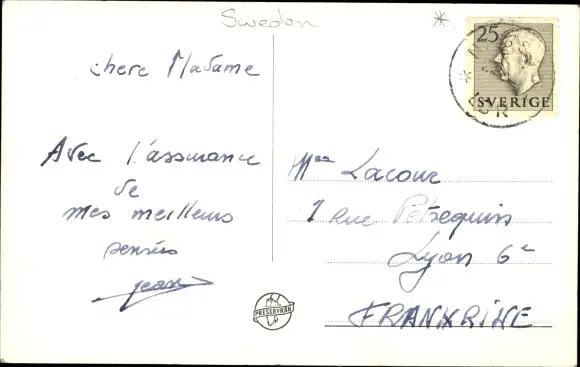 Sweden
*
25
SVERIGE
chere Madame
Avec l'assurance
de
mes meilleurs
pensées
Jean
Lacour
1 Rue Petrequin
Lyon 6e
FRANKRIKE
PRESSBYRÅN